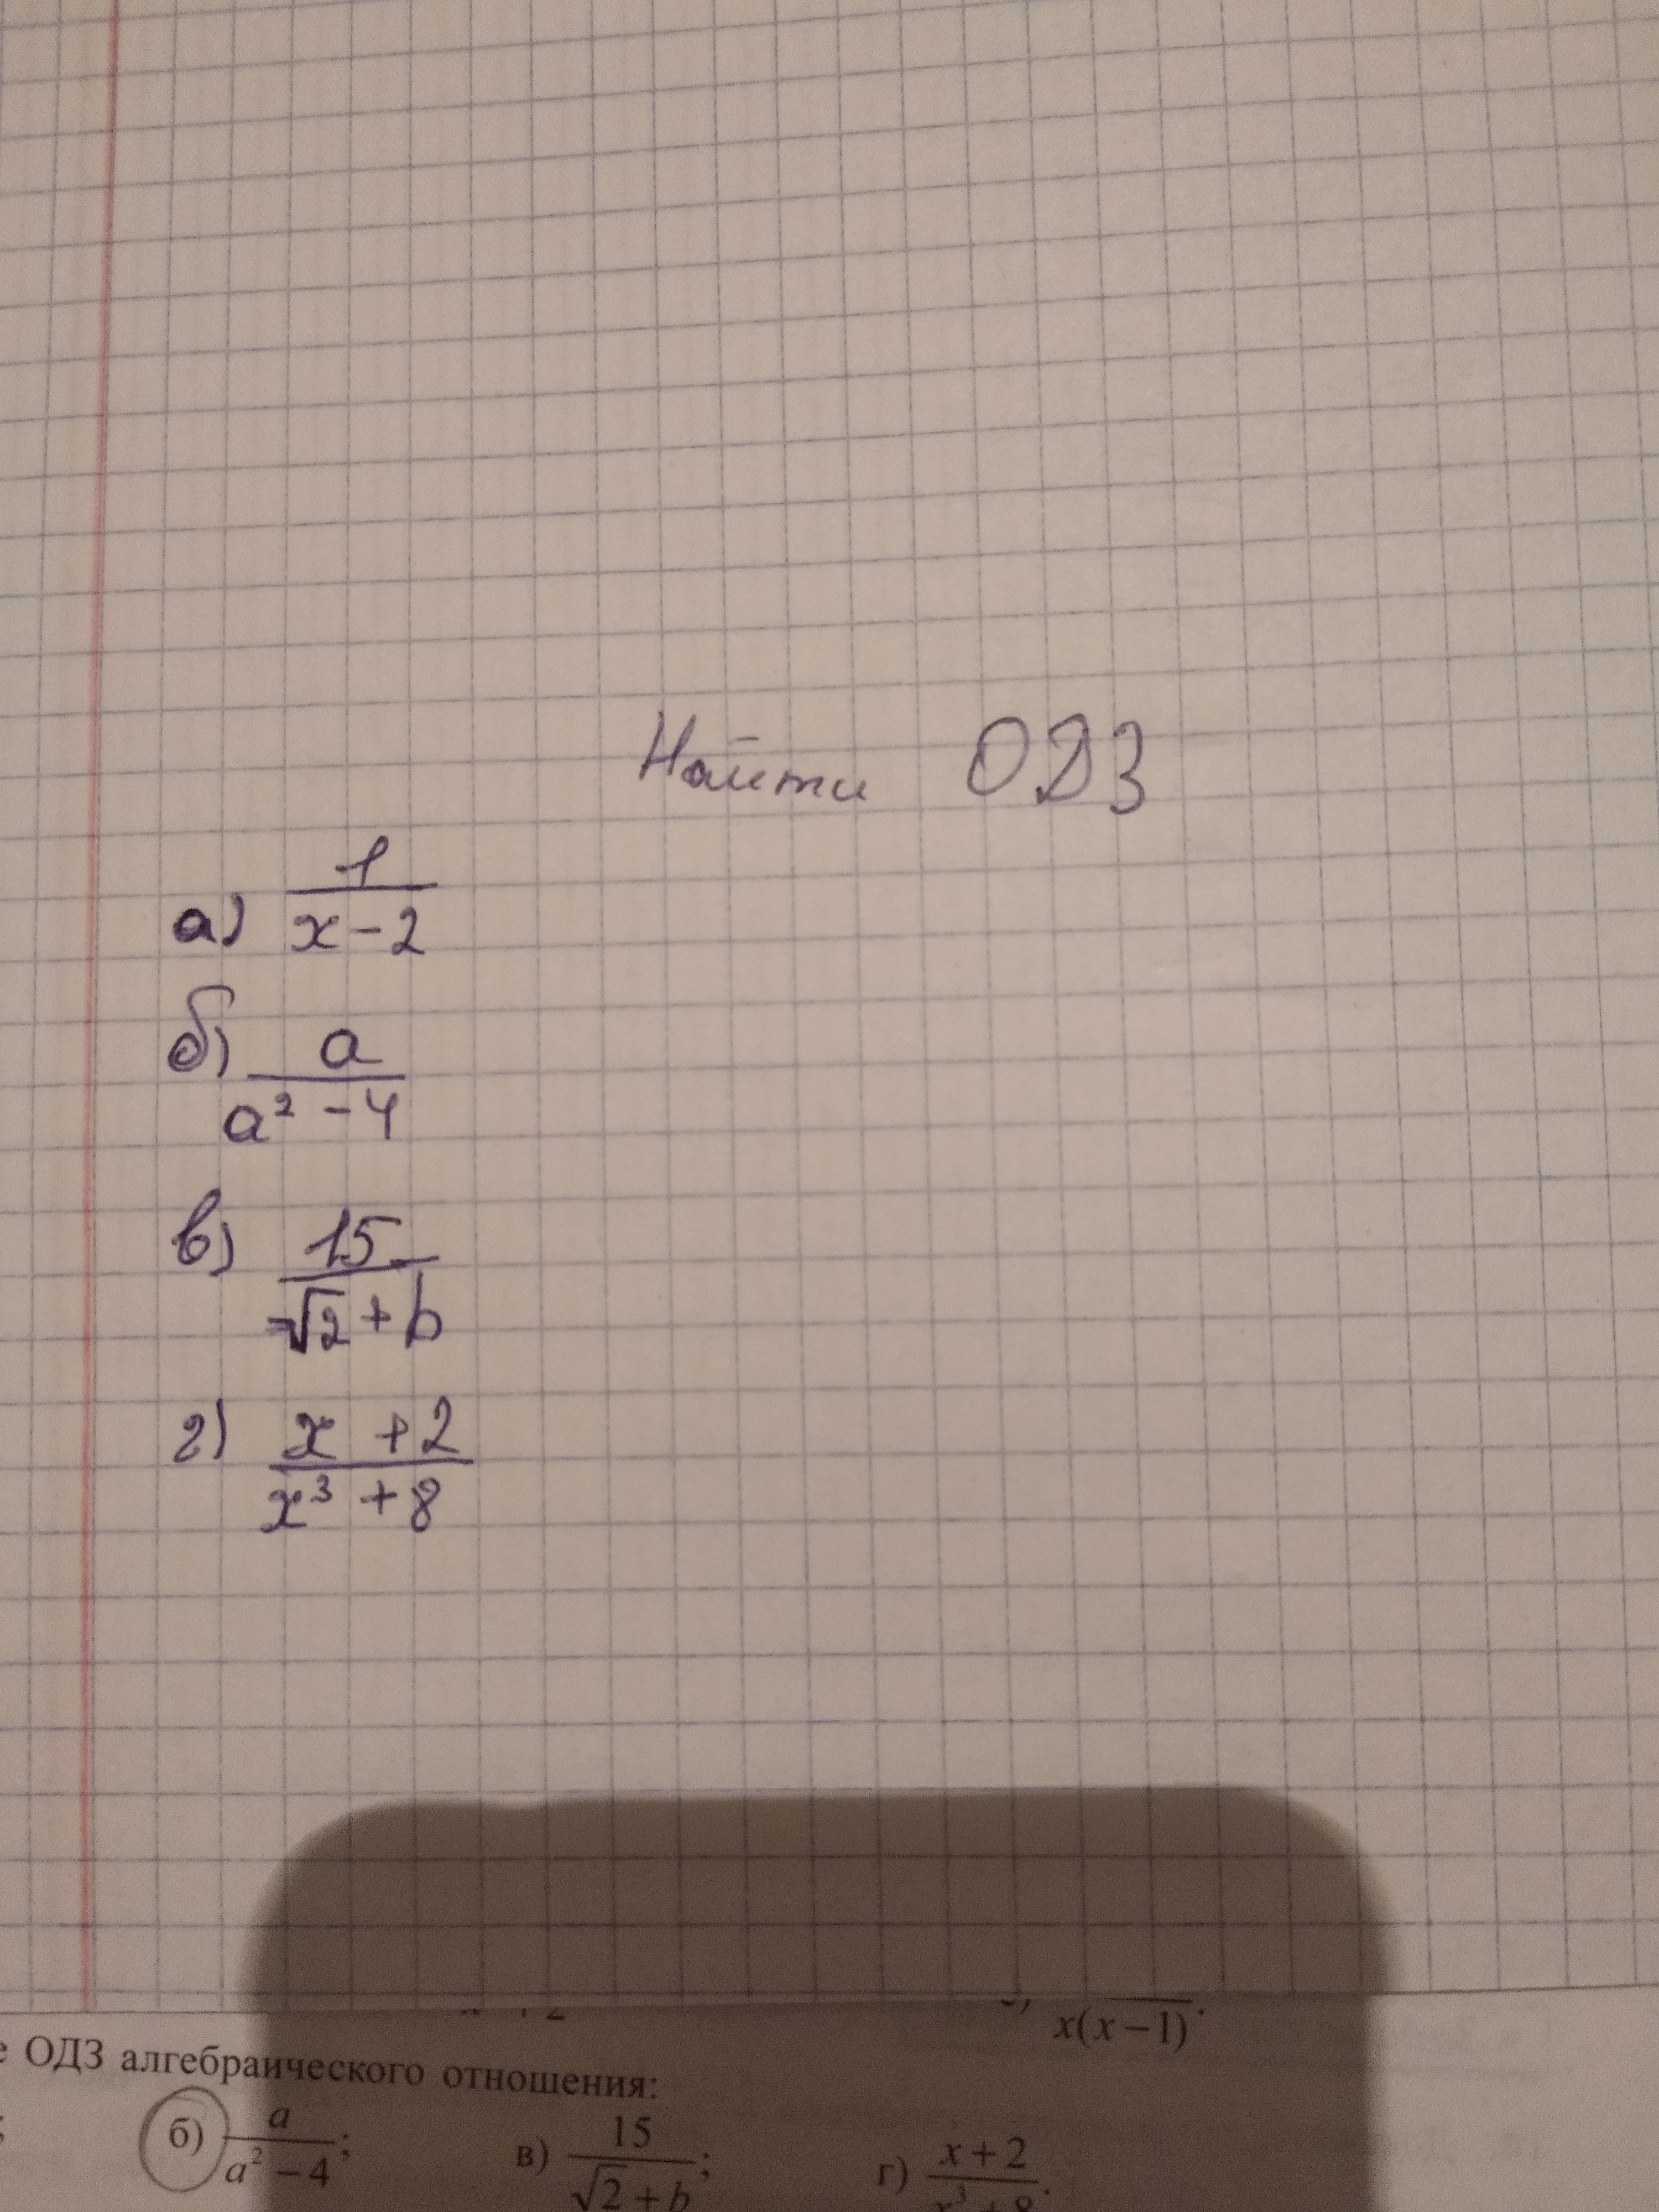 Найти ОДЗ
а) 1/(x-2)
б) a/(a² - 4)
в) 15/(√2 + b)
г) (x + 2)/(x³ + 8)
x(x – 1)
е ОДЗ алгебраического отношения:
; б) a/(a² – 4); в) 15/(√2 + b); г) (x + 2)/(x³ + 8).